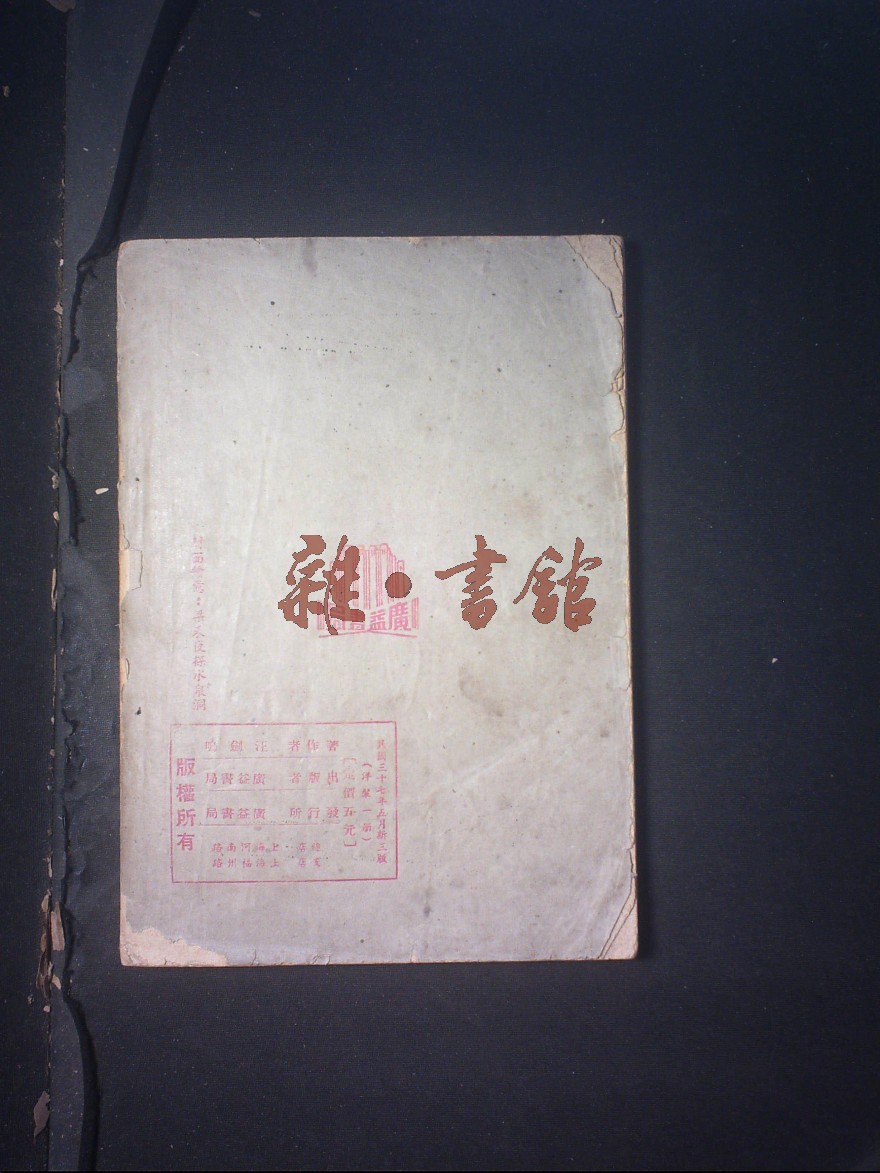 雜·書館
廣益書局
民國三十七年五月新三版
(洋裝一册)
價五元
著作者 汪劍鳴
出版者 廣益書局
發行所 廣益書局
上海河南路
上海福州路
版權所有